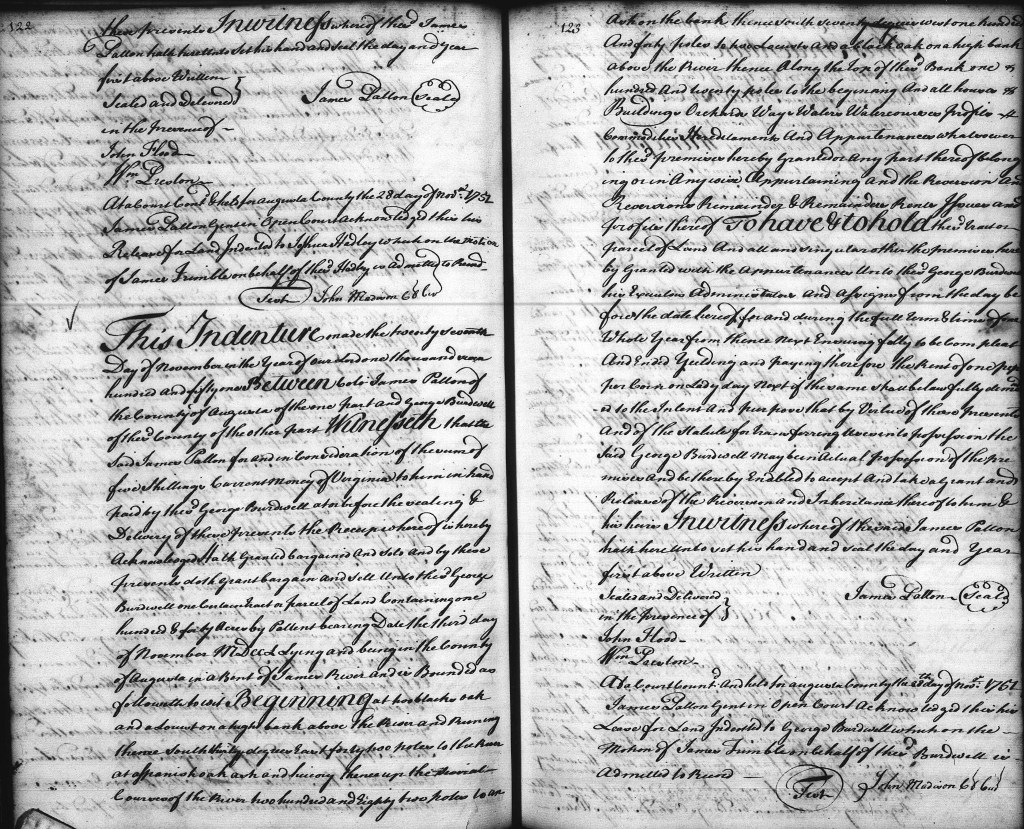 122
these presents In witness whereof the sd. James
Patton hath hereunto set his hand and seal the day and year
first above Written
Sealed and Delivered
James Patton Seald
in the Presence of
John Flood
Wm. Preston
At a Court Cont'd & held for augusta County the 28 day of Novr. 1751
James Patton Gent in Open Court acknowledged this his
Release for Land Indented to Joshua Hadley which on the motion
of James Trimble on behalf of the sd. Hadley is admitted to Record
Test John Madison Cl Cur
This Indenture made the twenty seventh
Day of November in the Year of our Lord one thousand seven
hundred And fifty one Between Colo. James Patton of
the County of Augusta of the one part and George Burdwell
of the sd. County of the other part Witnesseth that the
Said James Patton for and in Consideration of the sum of
five Shillings Current Money of Virginia to him in hand
paid by the sd. George Burdwell at or before the sealing &
Delivery of these presents the Receipt whereof is hereby
Acknowledged hath Granted Bargained And Sold And by these
presents doth Grant bargain and sell Unto the sd. George
Burdwell one Certain tract or parcel of Land Containing one
hundred & forty Acres by Pattent bearing Date the third day
of November Lying and being in the County
of Augusta in a Bent of James River and is Bounded as
followeth to wit Beginning at two blacks oak
and a locust on a high bank above the River and Runing
thence South thirty degrees East forty two poles to the River
at a spanish oak ash and hicory thence up the several
Courses of the River two hundred and Eighty two poles to an
123
Ash on the bank thence South seventy degrees west one hundred
And forty poles to two Locusts And a black oak on a high bank
above the River thence Along the top of the sd. Bank one
hundred And twenty poles to the begining And all houses &
Buildings Orchards Ways Waters Watercourses Profits
Comodities Hereditaments And Appurtenances whatsoever
to the sd. premises hereby Granted or any part thereof belong
ing or in Any wise Appurtaining And the Reversion And
Reversions Remainder & Remainders Rents Issues and
profits thereof To have & to hold the sd. tract or
parcel of Land And all and singular other the premises here
by Granted with the Appurtenances Unto the sd. George Burdwell
his Executors Administrators And Assigns from the day be
fore the date hereof for and during the full term & time of one
Whole Year from thence Next Ensuing fully to be Compleat
And Ended Yeilding and paying therefore the Rent of one pep
per Corn on Lady day Next if the same shall be lawfully deman
ed to the Intent And purpose that by Virtue of these presents
And of the Statute for transferring Uses into possession the
Said George Burdwell may be in Actual possession of the pre
mises And be thereby Enabled to accept And take a Grant and
Release of the Reversion and Inheritance thereof to him &
his heirs In witness whereof the said James Patton
hath hereUnto set his hand and seal the day and Year
first above Written
Sealed and Delivered
James Patton Seald
in the presence of
John Flood
Wm. Preston
At a Court Count'd And held for augusta County the 28th day of Novr. 1751
James Patton Gent in Open Court Acknowledged this his
Lease for Land Indented to George Burdwell which on the
Motion of James Trimble in behalf of the sd. Burdwell is
Admitted to Record
Test John Madison Cl Cur